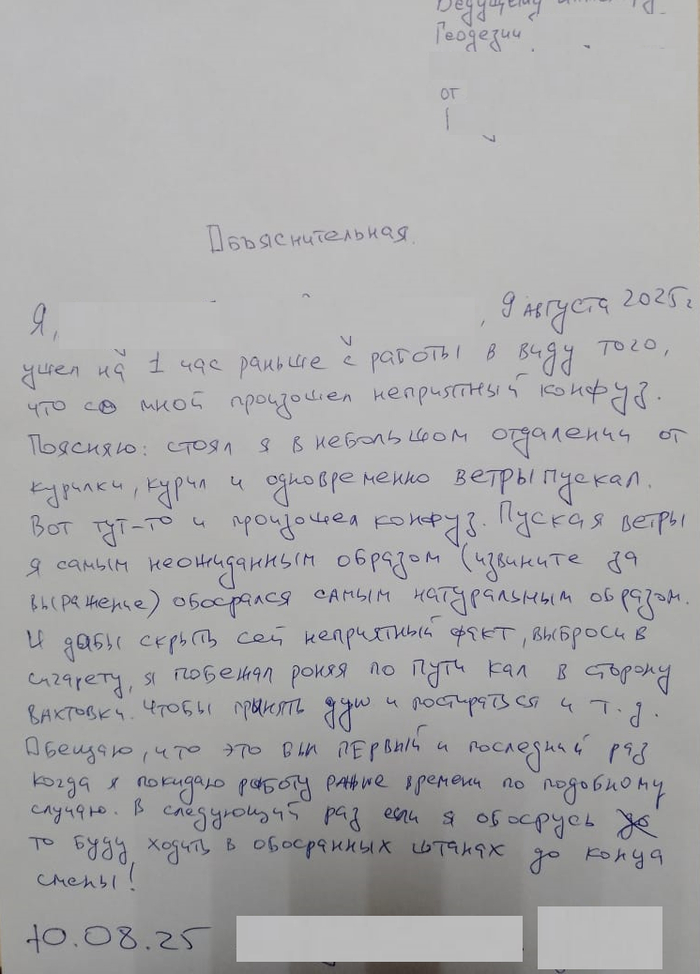 Ведущему
Геодезии
от
Объяснительная.
Я, , 9 августа 2025 г
ушел на 1 час раньше с работы в виду того,
что со мной произошел неприятный конфуз.
Поясняю: стоял я в небольшом отдалении от
курилки, курил и одновременно ветры пускал.
Вот тут-то и произошел конфуз. Пуская ветры
я самым неожиданным образом (извините за
выражение) обосрался самым натуральным образом.
И дабы скрыть сей неприятный факт, выбросив
сигарету, я побежал роняя по пути кал в сторону
вахтовки. Чтобы принять душ и постираться и т.д.
Обещаю, что это был первый и последний раз
когда я покидаю работу раньше времени по подобному
случаю. В следующий раз если я обосрусь
то буду ходить в обосранных штанах до конца
смены!
10.08.25